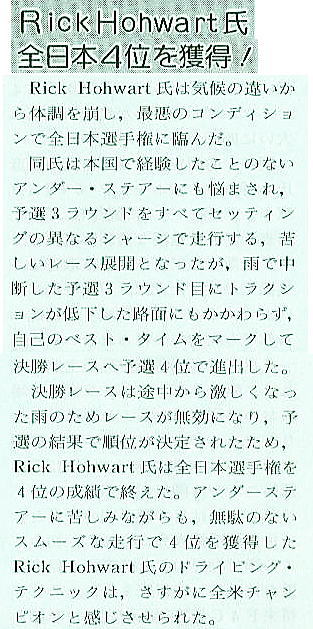 Rick Hohwart氏
全日本4位を獲得!
Rick Hohwart氏は気候の違いか
ら体調を崩し，最悪のコンディショ
ンで全日本選手権に臨んだ。
同氏は本国で経験したことのない
アンダー・ステアーにも悩まされ，
予選3ラウンドをすべてセッティン
グの異なるシャーシで走行する，苦
しいレース展開となったが，雨で中
断した予選3ラウンド目にトラクシ
ョンが低下した路面にもかかわらず，
自己のベスト・タイムをマークして
決勝レースへ予選4位で進出した。
決勝レースは途中から激しくなっ
た雨のためレースが無効になり，予
選の結果で順位が決定されたため，
Rick Hohwart氏は全日本選手権を
4位の成績で終えた。アンダーステ
アーに苦しみながらも，無駄のない
スムーズな走行で4位を獲得した
Rick Hohwart氏のドライビング・
テクニックは，さすがに全米チャン
ピオンと感じさせられた。